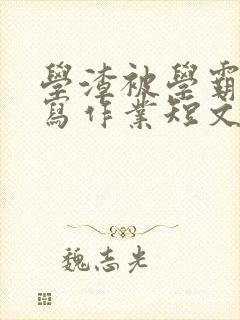 學渣被學霸
寫作業短文
魏志光